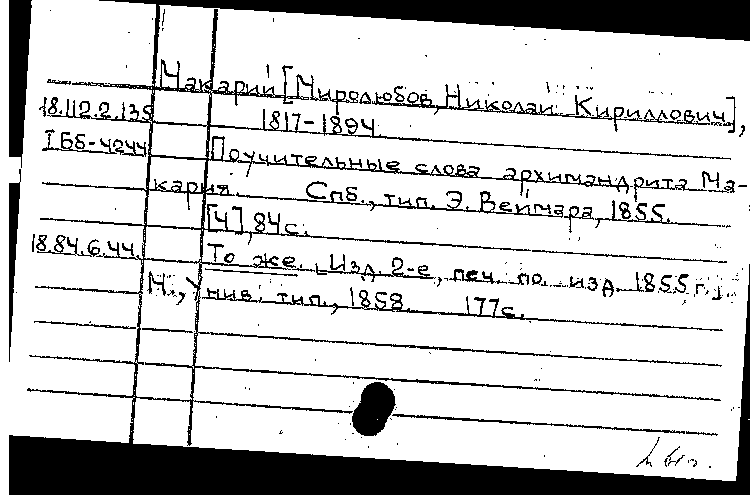 Макарий [Миролюбов, Николай Кириллович],
18.112.2.135 1817-1894.
I Бб-4244 Поучительные слова архимандрита Ма-
кария. Спб., тип. Э. Веймара, 1855.
[4], 84 с.
18.84.6.44. То же. [Изд. 2-е, печ. по изд. 1855 г.].
М., Унив. тип., 1858. 177 с.